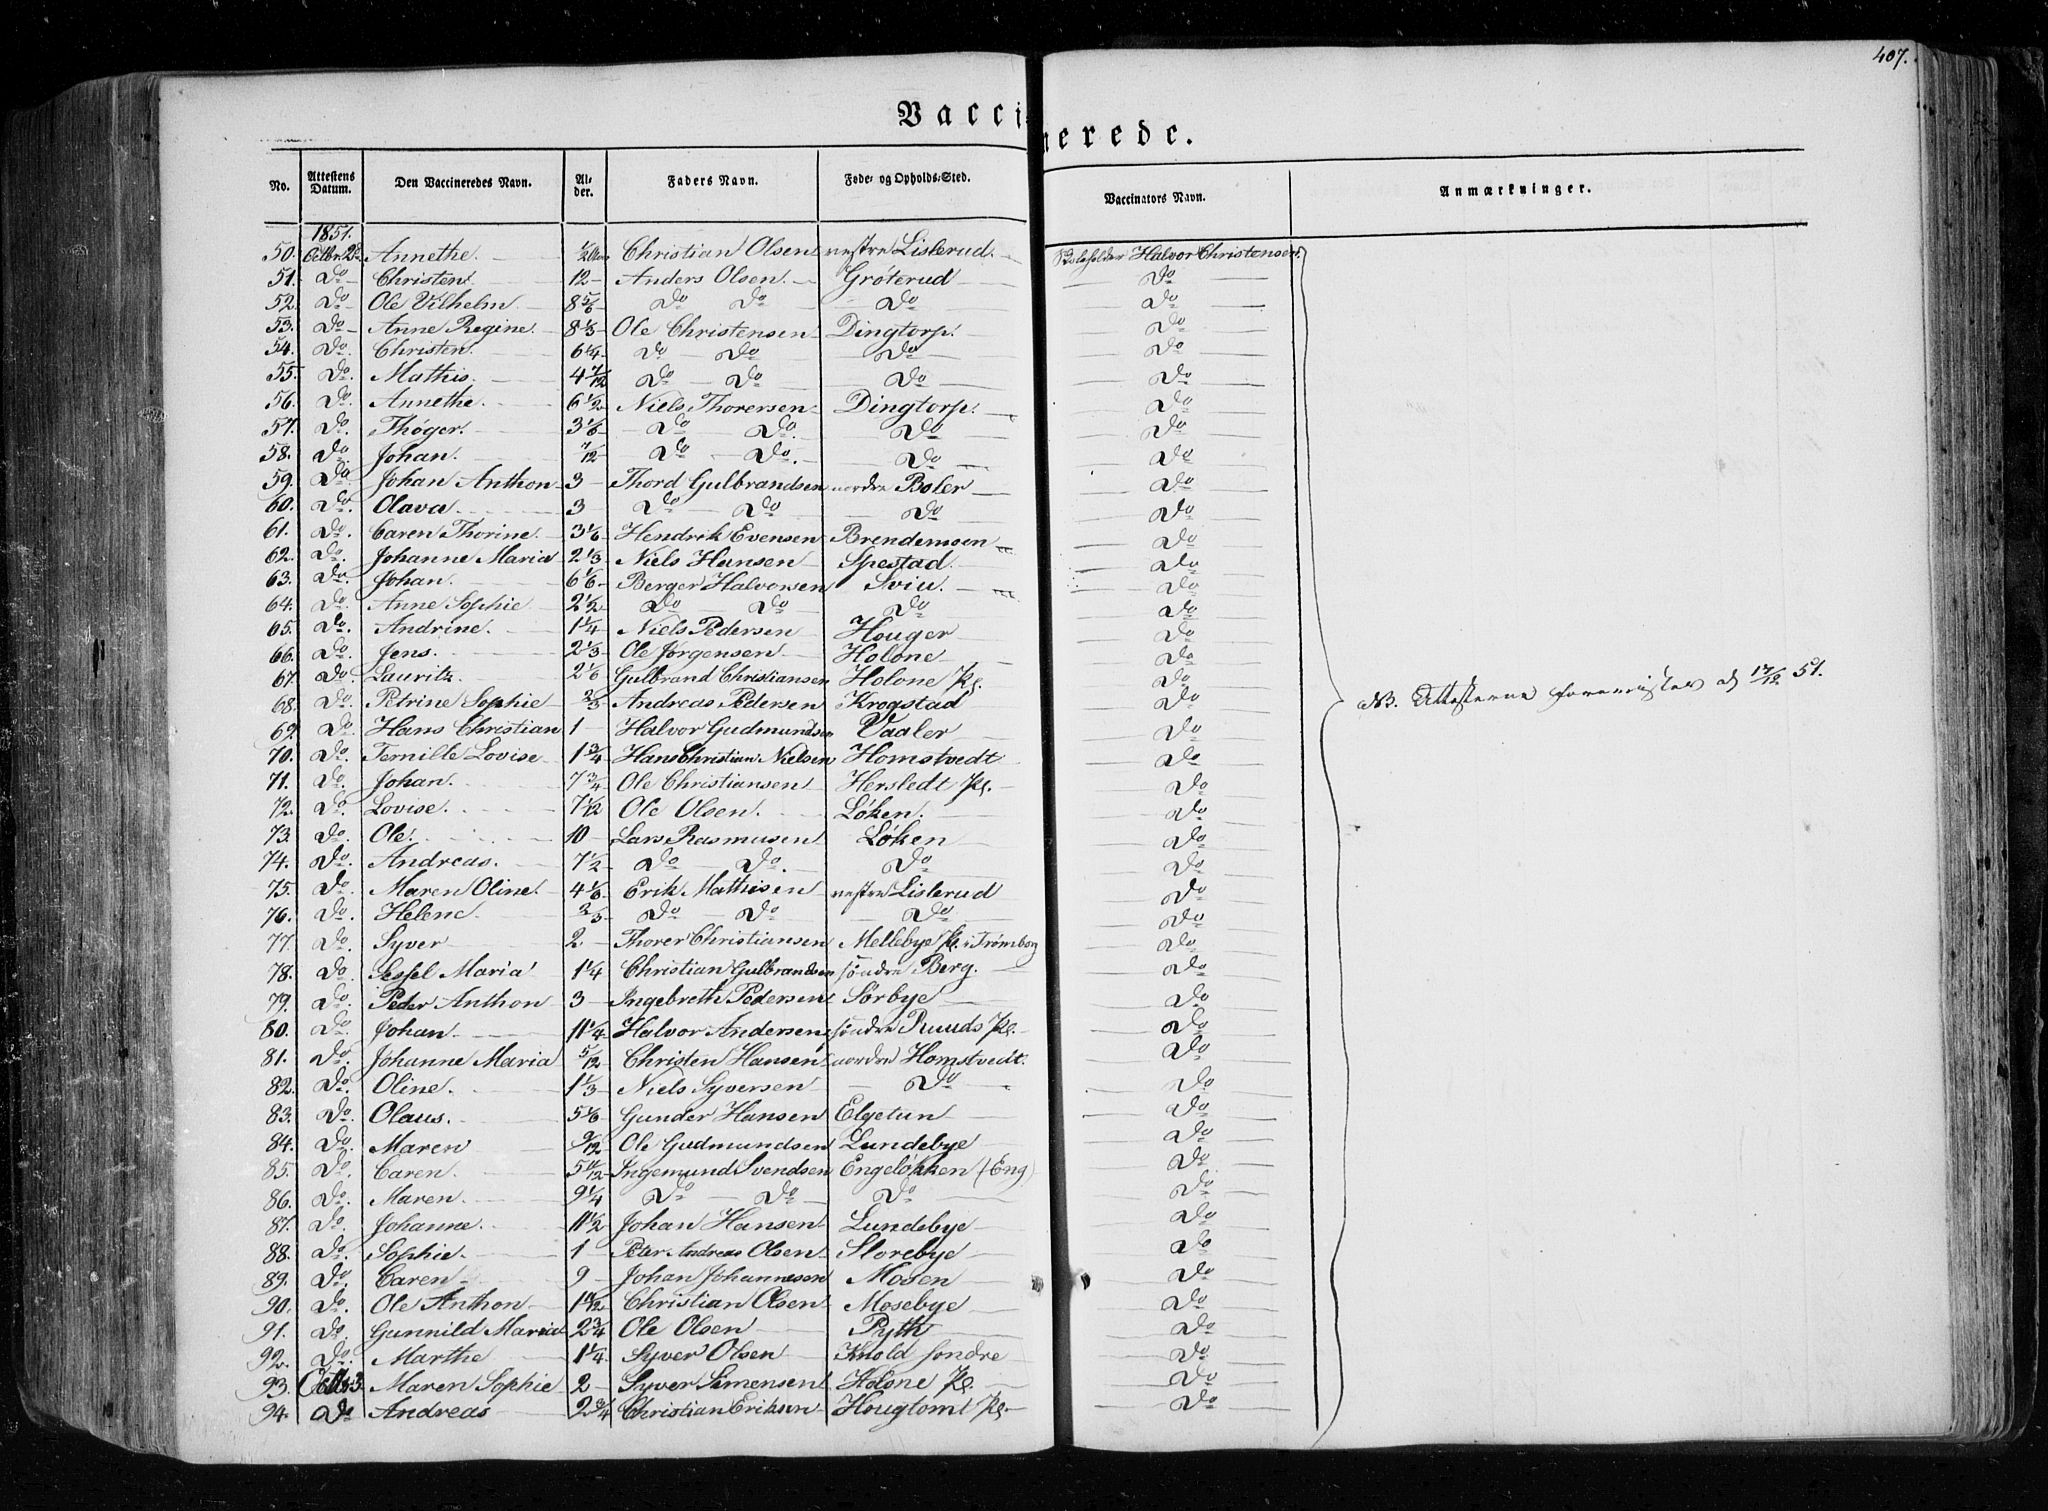 407.
Vaccinerede.
No. | Attestens Datum. | Den Vaccineredes Navn. | Alder. | Faders Navn. | Føde- og Opholds-Sted. | Vaccinators Navn. | Anmærkninger.
1851.
50. Octbr 2 Annethe. 1/2 Christian Olsen vestre Lislerud. Skoleholder Halvor Christensen.
51. Do Christen. 12 Anders Olsen. Gröterud Do
52. Do Ole Vilhelm 8 5/6 Do Do Do Do
53. Do Anne Regine. 8 1/3 Ole Christensen Dingtorp. Do
54. Do. Christen. 6 1/4 Do Do Do Do
55. Do. Mathis. 4 7/12 Do Do Do Do
56. Do. Annethe. 6 1/2 Niels Thorersen Dingtorp. Do
57. Do. Thøger. 3 1/6 Do Do. Do Do
58. Do Johan. 7/12 Do Do. Do Do
59. Do Johan Anthon 3 Thord Gulbrandsen nordre Boler Do
60. Do. Olava 3 Do Do Do Do
61. Do. Caren Thorine. 3 1/6 Hendrik Evensen Brendemoen Do
62. Do. Johanne Maria 2 1/3 Niels Hansen Spestad. Do
63. Do. Johan. 6 1/6 Berger Halvorsen Sviu. Do
64. Do. Anne Sophie 2 1/2 Do Do Do Do
65. Do. Andrine. 1 1/4 Niels Pedersen Houger Do
66. Do. Jens. 2 1/3 Ole Jørgensen Holone Do
67. Do. Lauritz. 2 1/6 Gulbrand Christiansen Holone Pl. Do
68. Do. Petrine Sophie 2/3 Andreas Pedersen Krogstad Do NB. Attesterne foreviistes d 17/12 51.
69. Do Hans Christian 1 Halvor Gudmundsen Vaaler Do
70. Do. Ternille Lovise 1 3/4 Hans Christian Nielsen Homstvedt Do
71. Do. Johan. 7 3/4 Ole Christiansen Herstedt Pl. Do
72. Do. Lovise. 7 1/12 Ole Olsen. Løken. Do
73. Do. Ole. 10 Lars Rasmusen Løken Do
74. Do. Andreas. 7 1/2 Do Do. Do Do
75. Do Maren Oline. 4 1/6 Erik Mathisen vestre Lislerud Do
76. Do. Helene Do Do Do Do
77. Do. Syver 2 Thorer Christiansen Mellebye Pl. i Trømborg Do
78. Do. Sessel Maria 1 1/4 Christian Gulbrandsen söndre Berg. Do
79. Do Peder Anthon 3 Ingebreth Pedersen Sörbye Do
80. Do. Johan. 11 1/4 Halvor Andersen söndre Ruuds Pl. Do
81. Do. Johanne Maria 5/12 Christen Hansen nordre Homstvedt. Do
82. Do. Oline. 1 1/3 Niels Syversen Do Do
83. Do. Olaus. 5 1/6 Gunder Hansen Elgetun Do
84. Do. Maren 9/12 Ole Gudmundsen Lundebye Do
85. Do. Caren. 5 11/12 Ingemund Svendsen Engeløkken (Eng) Do
86. Do. Maren. 9 1/4 Do Do Do Do
87. Do. Johanne. 11 1/2 Johan Hansen Lundebye Do
88. Do. Sophie. 1 Peter Andreas Olsen Storebye Do
89. Do. Caren 9 Johan Johannesen Mosen Do
90. Do. Ole Anthon Christian Olsen Mosebye Do
91. Do. Gunnild Maria 2 3/4 Ole Olsen Pyth Do
92. Do. Marthe 1 1/4 Syver Olsen Knold söndre Do
93. Octbr 3 Maren Sophie 2 Syver Simensen Holone Pl. Do
94. Do Andreas 2 3/4 Christian Eriksen Hougtomt Pl. Do